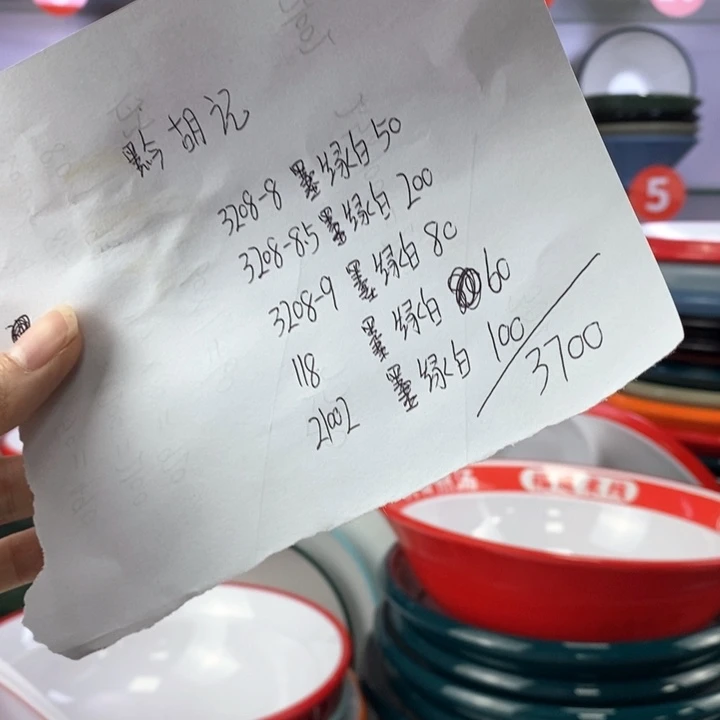 黔胡记
3208-8 墨绿白 50
3208-8.5 墨绿白 200
3208-9 墨绿白 80
118 墨绿白 60
2102 墨绿白 100
3700
5